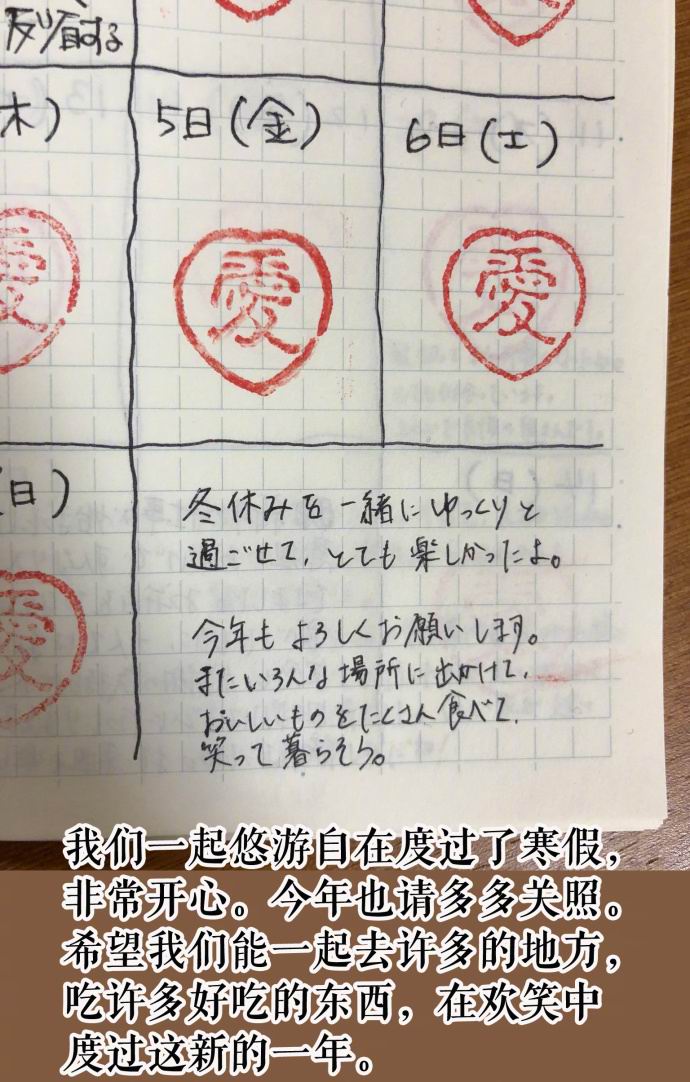 木)
5日(金)
6日(土)
愛
愛
愛
日)
愛
冬休みを一緒にゆっくりと
過ごせて、とても楽しかったよ。
今年もよろしくお願いします。
またいろんな場所に出かけて、
おいしいものをたくさん食べて、
笑って暮らそう。
我们一起悠游自在度过了寒假，
非常开心。今年也请多多关照。
希望我们能一起去许多的地方，
吃许多好吃的东西，在欢笑中
度过这新的一年。